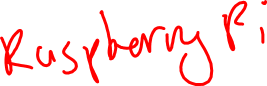 Raspberry Pi